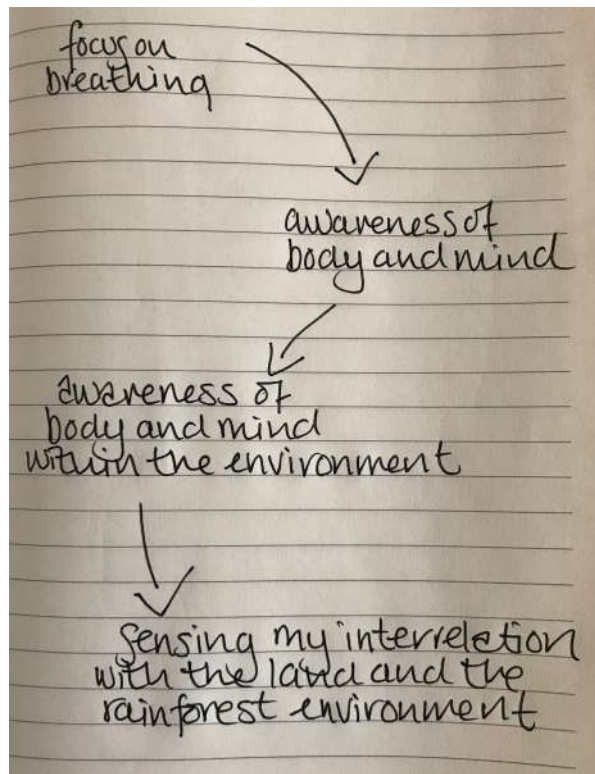 focus on
breathing
awareness of
body and mind
awareness of
body and mind
within the environment
sensing my interrelation
with the land and the
rainforest environment